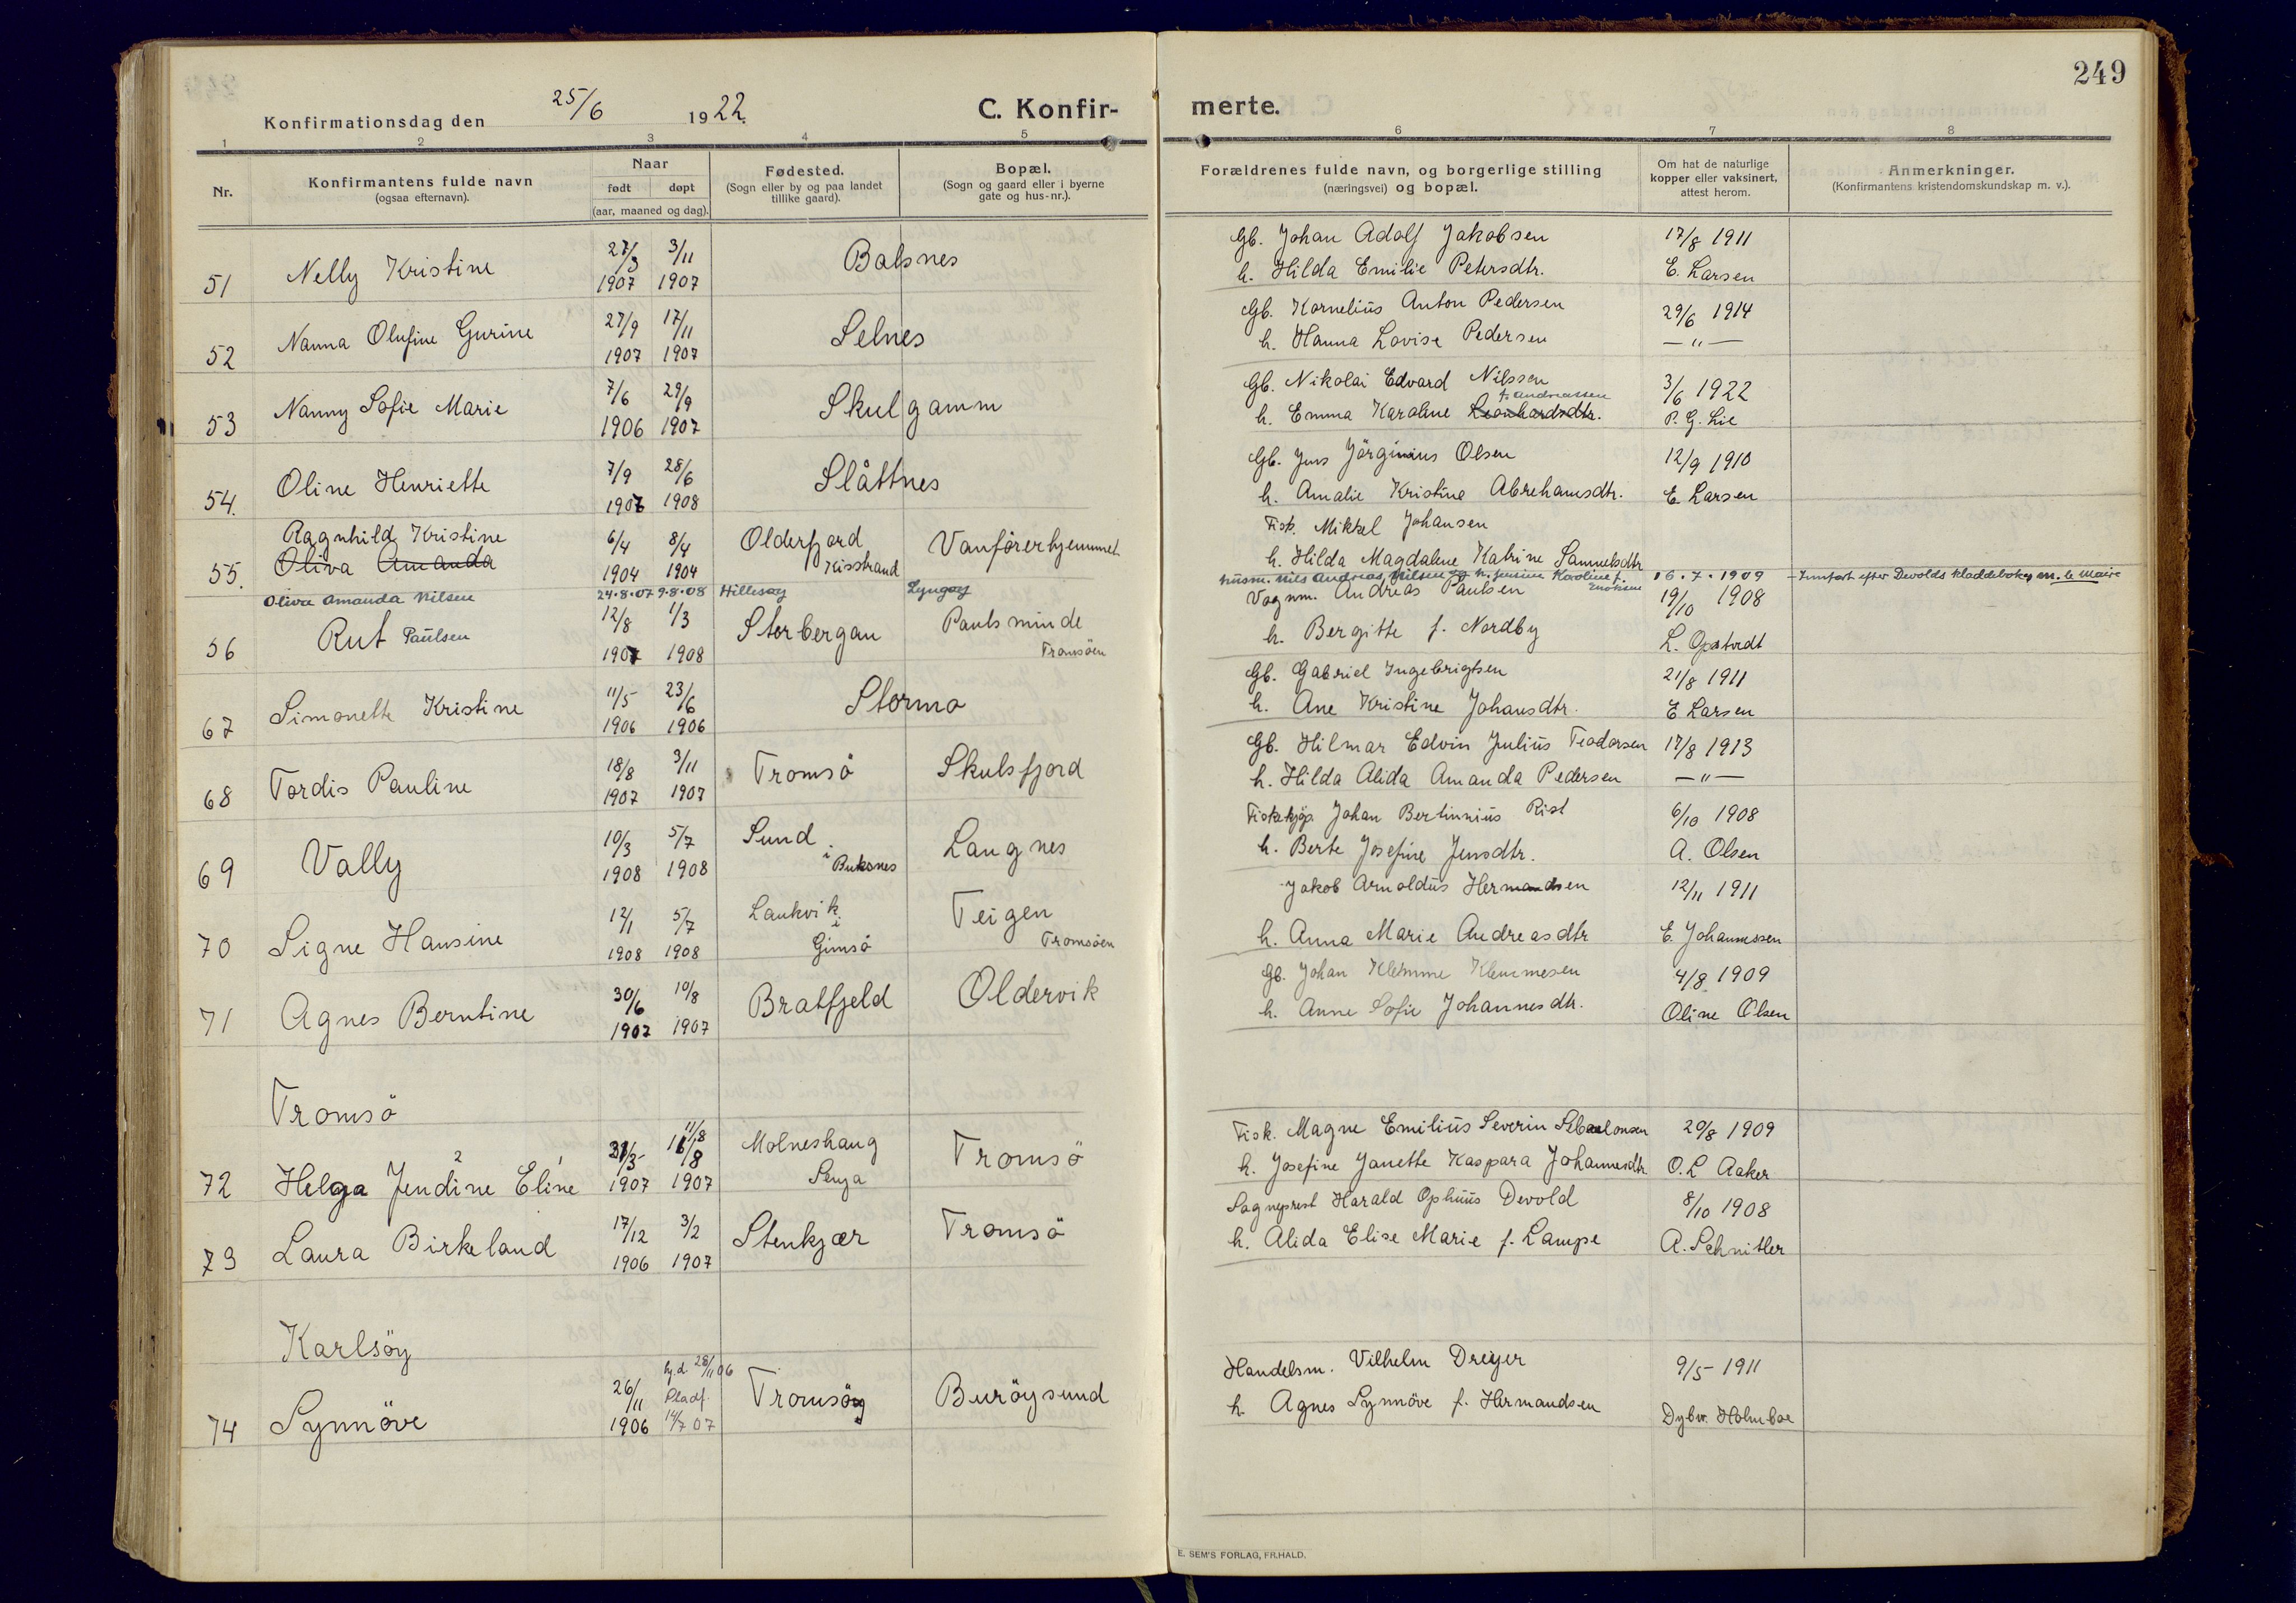 249
Konfirmationsdag den 25/6 1922. C. Konfirmerte.
1 2 3 4 5 6 7 8
Nr.
Konfirmantens fulde navn
(ogsaa efternavn).
Naar
født døpt
(aar, maaned og dag).
Fødested.
(Sogn eller by og paa landet
tillike gaard).
Bopæl.
(Sogn og gaard eller i byerne
gate og hus-nr.).
Forældrenes fulde navn, og borgerlige stilling
(næringsvei) og bopæl.
Om hat de naturlige
kopper eller vaksinert,
attest herom.
Anmerkninger.
(Konfirmantens kristendomskundskap m. v.).
27/3 3/11 Gb. Johan Adolf Jakobsen 17/8 1911
51 Nelly Kristine 1907 1907 Balsnes h. Hilda Emilie Petersdtr. E. Larsen
27/9 17/11 Gb. Kornelius Anton Pedersen 29/6 1914
52 Nanna Olufine Gurine 1907 1907 Selnes h. Hanna Lovise Pedersen —"—
7/6 29/9 Gb. Nikolai Edvard Nilssen 3/6 1922
f. Andreassen
53 Nanny Sofie Marie 1906 1907 Skulgamm h. Emma Karoline Leonhardsdtr. P. G. Lie
7/9 28/6 Gb. Jens Jörginius Olsen 12/9 1910
54. Oline Henriette 1907 1908 Slåttnes h. Amalie Kristine Abrehamsdtr. E. Larsen
Ragnhild Kristine 6/4 8/4 Olderfjord Vanförerhjemmet Fisk. Mikkel Johansen
55. Oliva Amanda 1904 1904 Kisstrand h. Hilda Magdalene Katrine Samuelsdtr
Oliva Amanda Nilsen 24.8.07 9.8.08 Hillesøy Lyngøy husm. Nils Andreas Nilsen og h. Jensine Karoline f. Enoksen 16.7.1909 – Innført efter Devolds kladdebok m. le Maire
12/8 1/3 Paulsminde Vognm. Andreas Paulsen 19/10 1908
56 Rut Paulsen 1907 1908 Storbergan Tromsöen h. Bergitte f. Nordby L. Opstvedt
11/5 23/6 Gb. Gabriel Ingebrigtsen 21/8 1911
67 Simonette Kristine 1906 1906 Stormo h. Ane Kristine Johansdtr. E Larsen
18/8 3/11 Gb. Hilmar Edvin Julius Teodorsen 17/8 1913
68 Tordis Pauline 1907 1907 Tromsö Skulsfjord h. Hilda Alida Amanda Pedersen —"—
10/3 5/7 Sund Fiskekjöp. Johan Bertinnius Rist 6/10 1908
69 Vally 1908 1908 i Buksnes Langnes h. Berte Josefine Jensdtr. A. Olsen
12/1 5/7 Laukvik Teigen Jakob Arnoldus Hermandsen 12/11 1911
70 Signe Hansine 1908 1908 i Gimsö Tromsöen h. Anna Marie Andreasdtr E. Johannessen
30/6 10/8 Gb. Johan Klemme Klemmesen 4/8 1909
71 Agnes Berntine 1907 1907 Bratfjeld Oldervik h. Anne Sofie Johannesdtr. Oline Olsen
Tromsö
11/8
31/3 16/8 Molneshaug Fisk. Magne Emilius Severin 20/8 1909
2 1
72 Helga Jendine Eline 1907 1907 Senja Tromsö h. Josefine Janette Kaspara Johannesdtr O. L Aaker
17/12 3/2 Sogneprest Harald Ophuus Devold 8/10 1908
73 Laura Birkeland 1906 1907 Stenkjær Tromsö h. Alida Elise Marie f. Lampe A. Schnitler
Karlsöy
hj.d. 28/11 06
26/11 Pladf. Handelsm. Vilhelm Dreyer 9/5 1911
74 Synnöve 1906 14/7 07 Tromsöy Buröysund h. Agnes Synnöve f. Hermandsen Dybw. Holmboe
E. SEM'S FORLAG, FR.HALD.